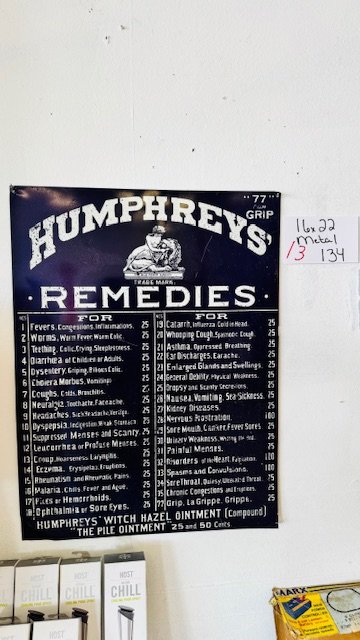 "77"
FOR
GRIP
HUMPHREYS'
TRADE MARK.
· REMEDIES ·
NOS FOR
1 Fevers, Congestions, Inflamations. 25
2 Worms, Worm Fever, Worm Colic. 25
3 Teething, Colic, Crying, Sleeplessness. 25
4 Diarrhea of Children or Adults. 25
5 Dysentery, Griping, Bilious Colic. 25
6 Cholera Morbus, Vomiting. 25
7 Coughs, Colds, Bronchitis. 25
8 Neuralgia, Toothache, Faceache. 25
9 Headaches, Sick Headache, Vertigo. 25
10 Dyspepsia, Indigestion, Weak Stomach. 25
11 Suppressed Menses and Scanty. 25
12 Leucorrhea or Profuse Menses. 25
13 Croup, Hoarseness, Laryngitis. 25
14 Eczema, Erysipelas, Eruptions. 25
15 Rheumatism and Rheumatic Pains. 25
16 Malaria, Chills, Fever and Ague. 25
17 Piles or Hemorrhoids. 25
18 Ophthalmia or Sore Eyes. 25
NOS FOR
19 Catarrh, Influenza, Cold in Head. 25
20 Whooping Cough, Spasmodic Cough. 25
21 Asthma, Oppressed Breathing. 25
22 Ear Discharges, Earache. 25
23 Enlarged Glands and Swellings. 25
24 General Debility, Physical Weakness. 25
25 Dropsy and Scanty Secretions. 25
26 Nausea, Vomiting, Sea-Sickness. 25
27 Kidney Diseases. 25
28 Nervous Prostration. 100
29 Sore Mouth, Canker, Fever Sores. 25
30 Urinary Weakness, Wetting the Bed. 25
31 Painful Menses. 25
32 Disorders of the Heart, Palpitation. 100
33 Spasms and Convulsions. 100
34 Sore Throat, Quinsy, Ulcerated Throat. 25
35 Chronic Congestions and Eruptions. 25
77 Grip, La Grippe, Grippe. 25
HUMPHREYS' WITCH HAZEL OINTMENT (Compound)
"THE PILE OINTMENT" 25 and 50 Cents.
16x22
metal
13 134
HOST
CHILL
HOST
CHILL
HOST
CHILL
MARX